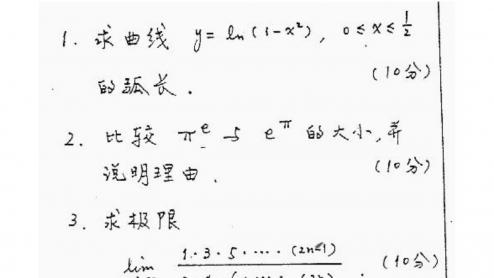 1. 求曲线 y = ln(1-x²), 0 ≤ x ≤ 1/2
的弧长. (10分)
2. 比较 π^e 与 e^π 的大小, 并
说明理由. (10分)
3. 求极限
lim 1·3·5·…·(2n-1) (10分)